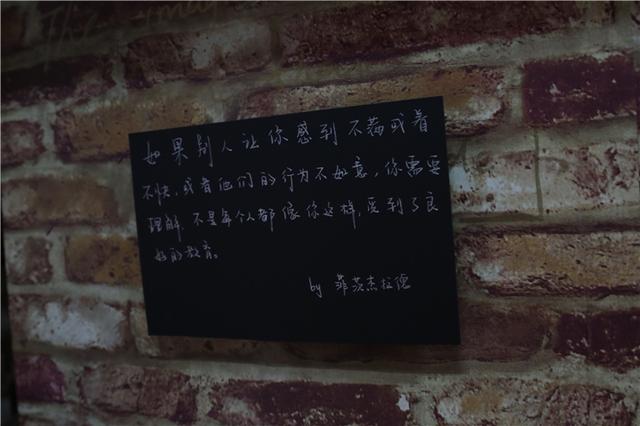 如果别人让你感到不满或着
不快，或者他们的行为不如意，你需要
理解，不是每个人都像你这样，受到了良
好的教育。
by 菲茨杰拉德